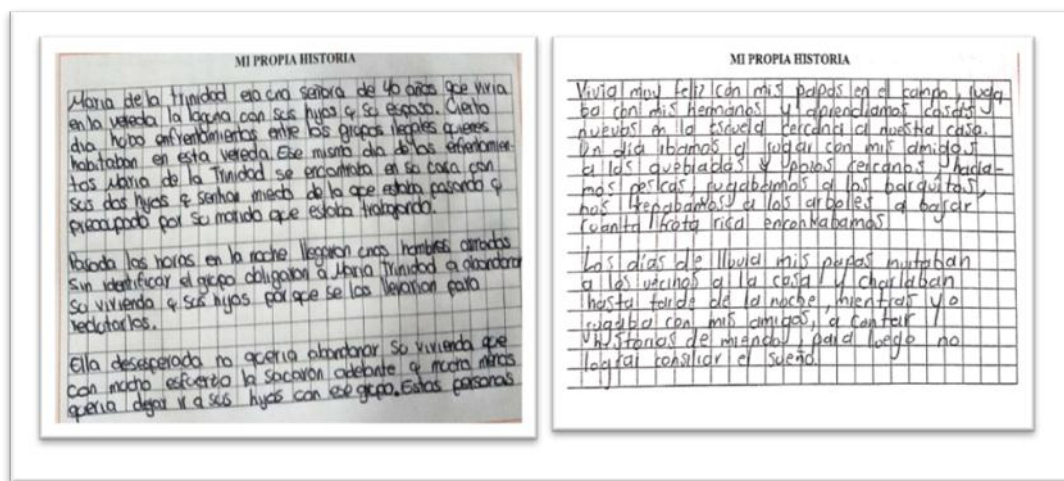 MI PROPIA HISTORIA
Maria de la trinidad era una señora de 40 años que vivia
en la vereda la laguna con sus hijos y su esposo. Cierto
dia hubo enfrentamientos entre los grupos ilegales quienes
habitaban en esta vereda. Ese mismo dia de los enfrentamien-
tos Maria de la Trinidad se encontraba en su casa con
sus dos hijos y senhan miedo de lo que estaba pasando y
preocupado por su marido que estaba trabajando.
Pasada las horas en la noche llegaron unos hombres armados
sin identificar el grupo obligaron a Maria Trinidad a abandonar
su vivienda y sus hijos por que se los llevarian para
reclutarlos.
Ella desesperada no queria abandonar su vivienda que
con mucho esfuerzo la sacaron adelante y mucho menos
queria dejar ir a sus hijos con ese grupo. Estas personas
MI PROPIA HISTORIA
Vivia muy feliz con mis papas en el campo, juga
ba con mis hermanos y aprendiamos cosas
nuevas en la escuela cercana a nuestra casa.
Un dia ibamos a jugar con mis amigos
a las quebradas y pozos cercanos, hacia-
mos pescas, jugabamos a los barquitos,
nos trepabamos a los arboles a bajar
cuanta fruta rica encontrabamos
Los dias de lluvia mis papas invitaban
a los vecinos a la casa y charlaban
hasta tarde de la noche, mientras yo
jugaba con mis amigos, a contar
historias de miendo, para luego no
lograr consiliar el sueño.